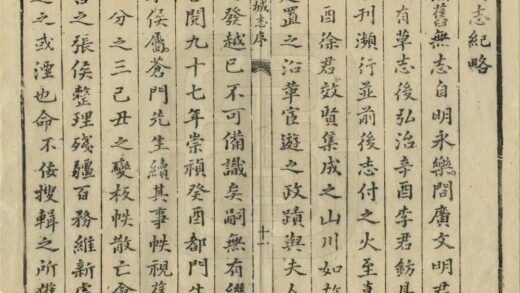 志紀略
舊無志自明永樂間廣文明君
有草志後弘治辛酉李君魴
刊瀕行並前後志付之火至
酉徐君效賢集成之山川如故
置之沿革宦遊之政蹟與夫人
城志序 十一
發越已不可備識矣嗣無有繼
閱九十七年崇禎癸酉都門生
侯屬蒼門先生續其事帙視舊
分之三己丑之變板帙散亡
之張侯整理殘疆百務維新
之或湮也命不佞搜輯之所